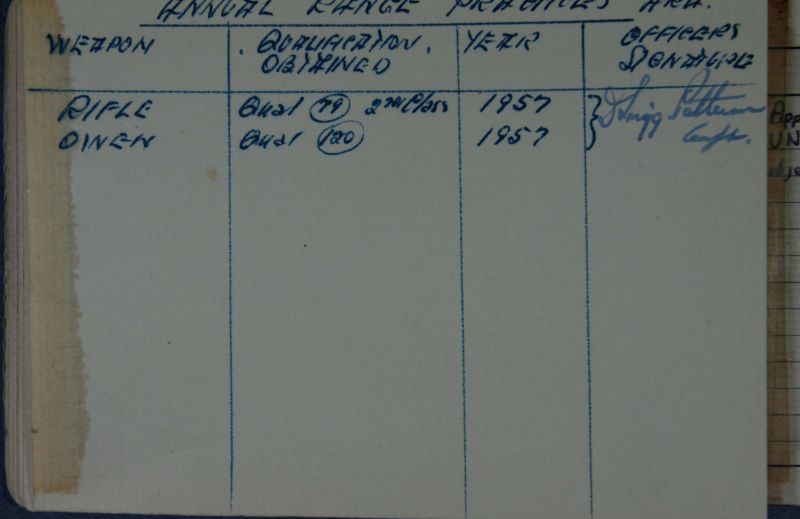 ANNUAL RANGE PRACTICES ARA.
WEAPON QUALIFICATION OBTAINED YEAR OFFICERS SIGNATURE
RIFLE Qual 79 2nd Class 1957
OWEN Qual 120 1957
Capt.
App
UN